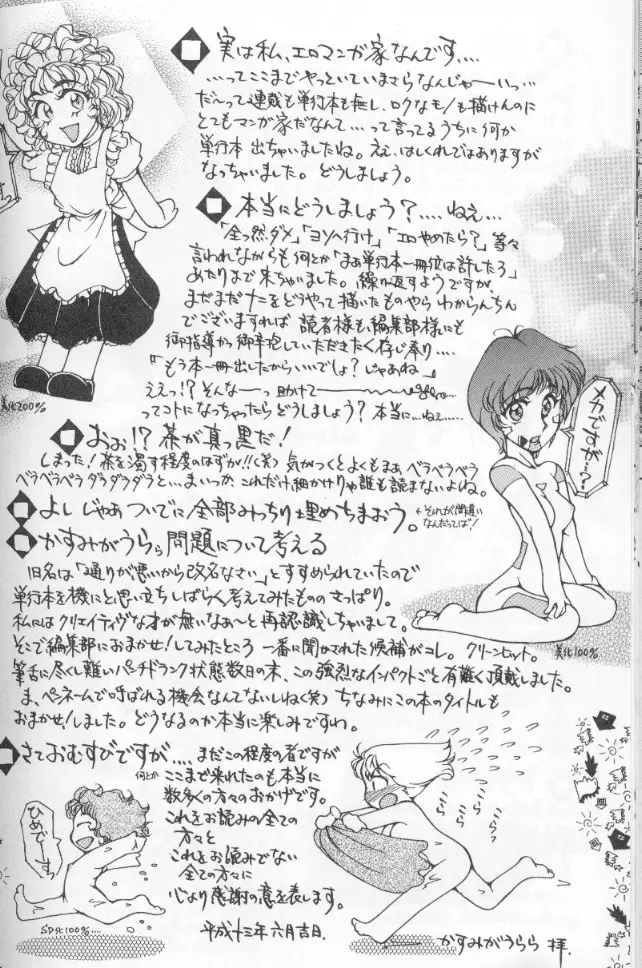 実は私、エロマンガ家なんです....
...ってここまでやっといていまさらなんじゃーいっ...
だ〜って連載も単行本も無し、ロクなモノも描けんのに
とてもマンガ家だなんて...って言ってるうちに何か
単行本 出ちゃいましたね。ええ、はしくれではありますが
なっちゃいました。どうしましょう。
本当にどうしましょう?....ねえ...
「全っ然ダメ」「ヨソへ行け」「エロやめたら?」等々
言われながらも何とか「まぁ単行本一冊位は許したろ」
あたりまで来ちゃいました。繰り返すようですが、
まだまだナニをどうやって描いたものやら わからんちん
でございますれば 読者様も編集部様にも
御指導かつ御辛抱していただきたく存じ奉り....
「もう本一冊出したからいいでしょ?じゃあね」
ええっ!?そんなーっ助けてー
ってコトになっちゃったらどうしましょう?本当に...ねぇ....
美化200%
メカですが...?
美化100%
おお!?茶が真っ黒だ!
しまった!茶を濁す程度のはずが!!(笑) 気がつくとよくもまぁ、ベラベラベラ
ベラベラベラダラダラダラと...まいっか、これだけ細かけりゃ誰も読まないよね。
よし じゃあ ついでに全部みっちり埋めちまおう。
←それが間違い
なんだってば!
かすみがうらら問題について考える
旧名は「通りが悪いから改名なさい」とすすめられていたので
単行本を機にと思い立ちしばらく考えてみたものの さっぱり。
私にはクリエイティヴな才が無いなあ〜と 再認識しちゃいまして。
そこで編集部におまかせ!してみたところ 一番に聞かされた候補がコレ。クリーンヒット。
筆舌に尽くし難いパンチドランク状態数日の末、この強烈なインパクトごと有難く頂戴しました。
ま、ペンネームで呼ばれる機会なんてないしねく笑) ちなみにこの本のタイトルも
おまかせ!しました。どうなるのか本当に楽しみですわ。
さておむすびですが....まだこの程度の者ですが
何とか ここまで来れたのも本当に
数多くの方々のおかげです。
これをお読みの全ての
方々と
これをお読みでない
全ての方々に
心より感謝の意を表します。
平成十三年六月吉日.
ひめです。
SD化100%....
うらら
うらら
うらら
かすみがうらら 拝.